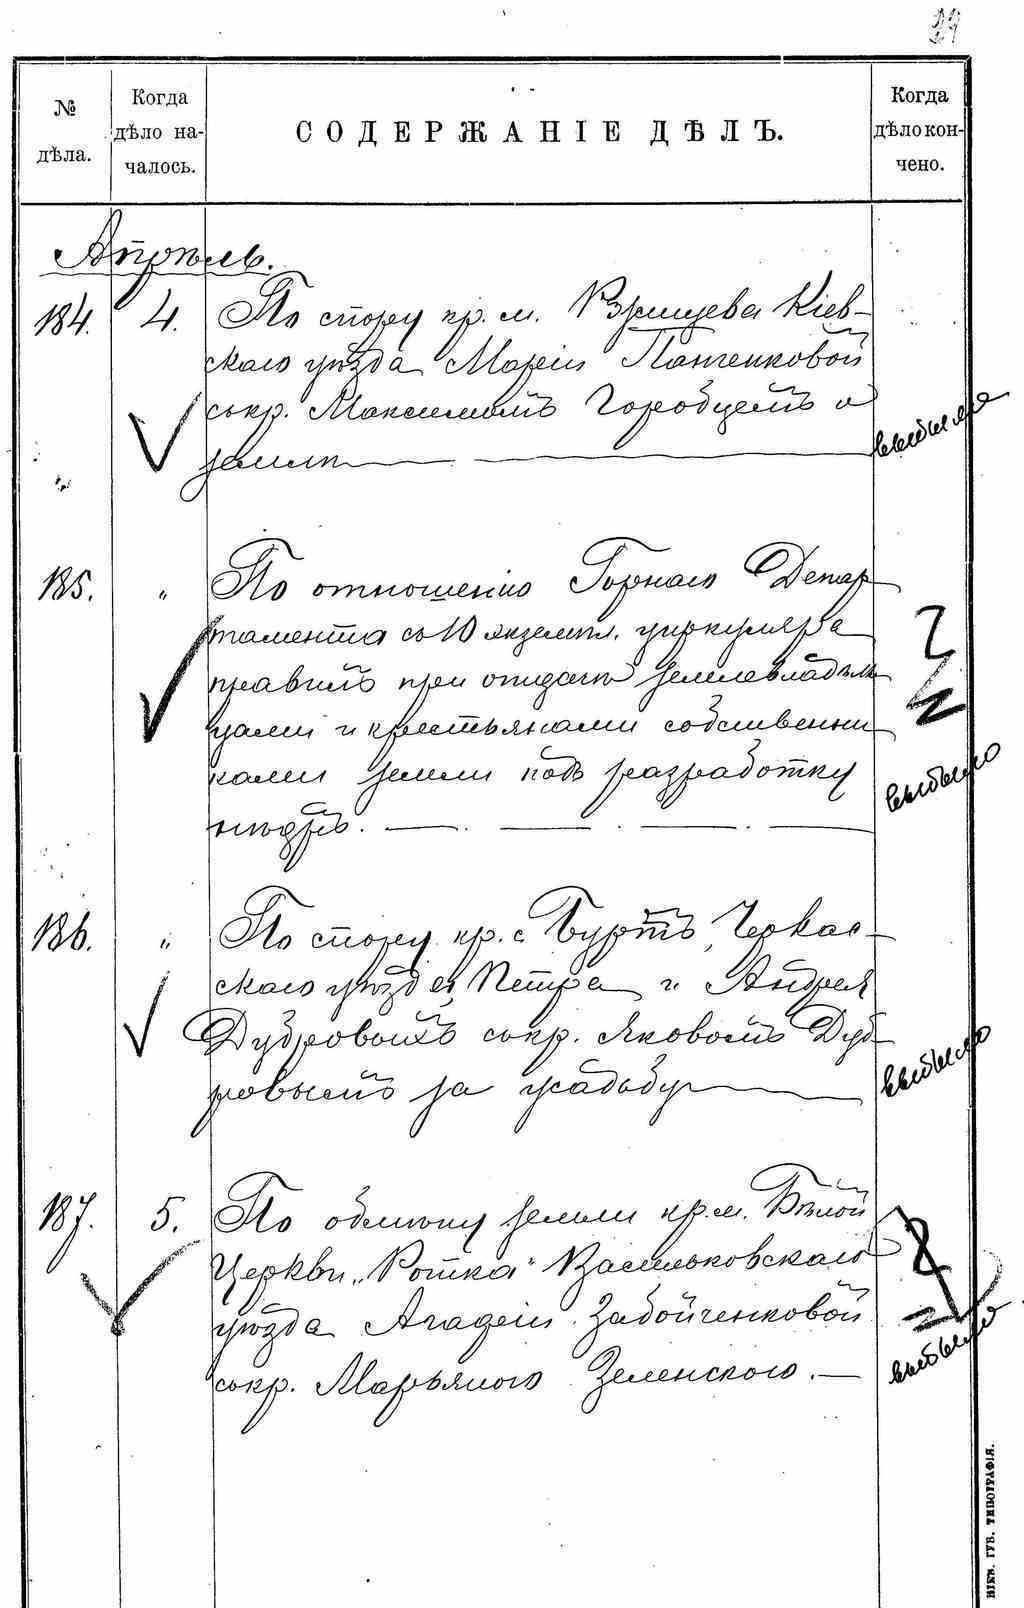 29
№ дѣла.
Когда дѣло началось.
СОДЕРЖАНІЕ ДѢЛЪ.
Когда дѣло кончено.
Апрѣль.
184. 4. По спору кр. м. Ржищева Кіев-
скаго уѣзда Маріи Панченковой
съ кр. Максимомъ Горобцемъ о
землѣ
выбыло
185. " По отношенію Горнаго Депар-
тамента съ 10 экземпл. циркуляра
правилъ при отдачѣ землевладѣль
цами и крестьянами собственни
ками земли подъ разработку
нѣдръ.
выбыло
186. " По спору кр. с. Буртъ, Черкас-
скаго уѣзда, Петра и Андрея
Дубровыхъ съ кр. Яковомъ Дуб-
ровымъ за усадьбу
выбыло
187. 5. По обмѣну земли кр. м. Бѣлой
Церкви „Ротка" Васильковскаго
уѣзда Агафіи Забойченковой
съ кр. Марьяномъ Зеленского.
выбыло
КІЕВ. ГУБ. ТИПОГРАФІЯ.